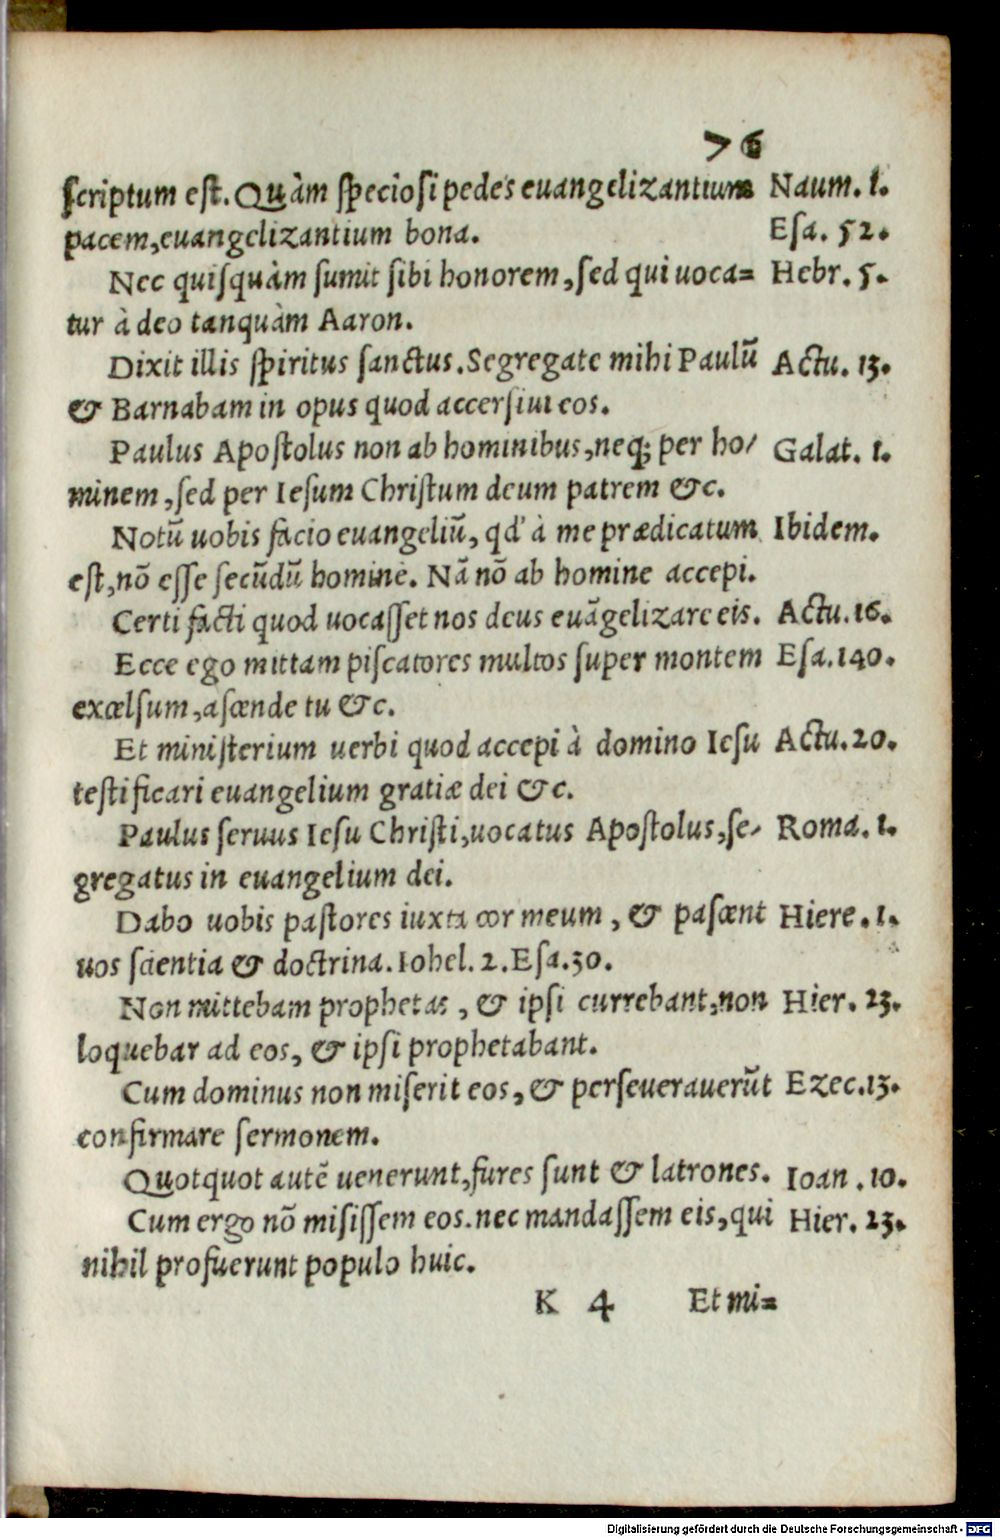 76
scriptum est. Quàm speciosi pedes euangelizantium Naum. 1.
pacem, euangelizantium bona. Esa. 52.
Nec quisquàm sumit sibi honorem, sed qui uoca= Hebr. 5.
tur à deo tanquàm Aaron.
Dixit illis spiritus sanctus. Segregate mihi Paulū Actu. 13.
& Barnabam in opus quod accersiui eos.
Paulus Apostolus non ab hominibus, neq; per ho/ Galat. 1.
minem, sed per Iesum Christum deum patrem &c.
Notū uobis facio euangeliū, qd' à me prædicatum Ibidem.
est, nō esse secūdū homine. Nā nō ab homine accepi.
Certi facti quod uocasset nos deus euāgelizare eis. Actu. 16.
Ecce ego mittam piscatores multos super montem Esa. 140.
excelsum, ascende tu &c.
Et ministerium uerbi quod accepi à domino Iesu Actu. 20.
testificari euangelium gratiæ dei &c.
Paulus seruus Iesu Christi, uocatus Apostolus, se/ Roma. 1.
gregatus in euangelium dei.
Dabo uobis pastores iuxta cor meum, & pascent Hiere. 1.
uos scientia & doctrina. Iohel. 2. Esa. 30.
Non mittebam prophetas, & ipsi currebant, non Hier. 23.
loquebar ad eos, & ipsi prophetabant.
Cum dominus non miserit eos, & perseuerauerūt Ezec. 13.
confirmare sermonem.
Quotquot autē uenerunt, fures sunt & latrones. Ioan. 10.
Cum ergo nō misissem eos. nec mandassem eis, qui Hier. 23.
nihil profuerunt populo huic.
K 4 Et mi=
Digitalisierung gefördert durch die Deutsche Forschungsgemeinschaft - DFG